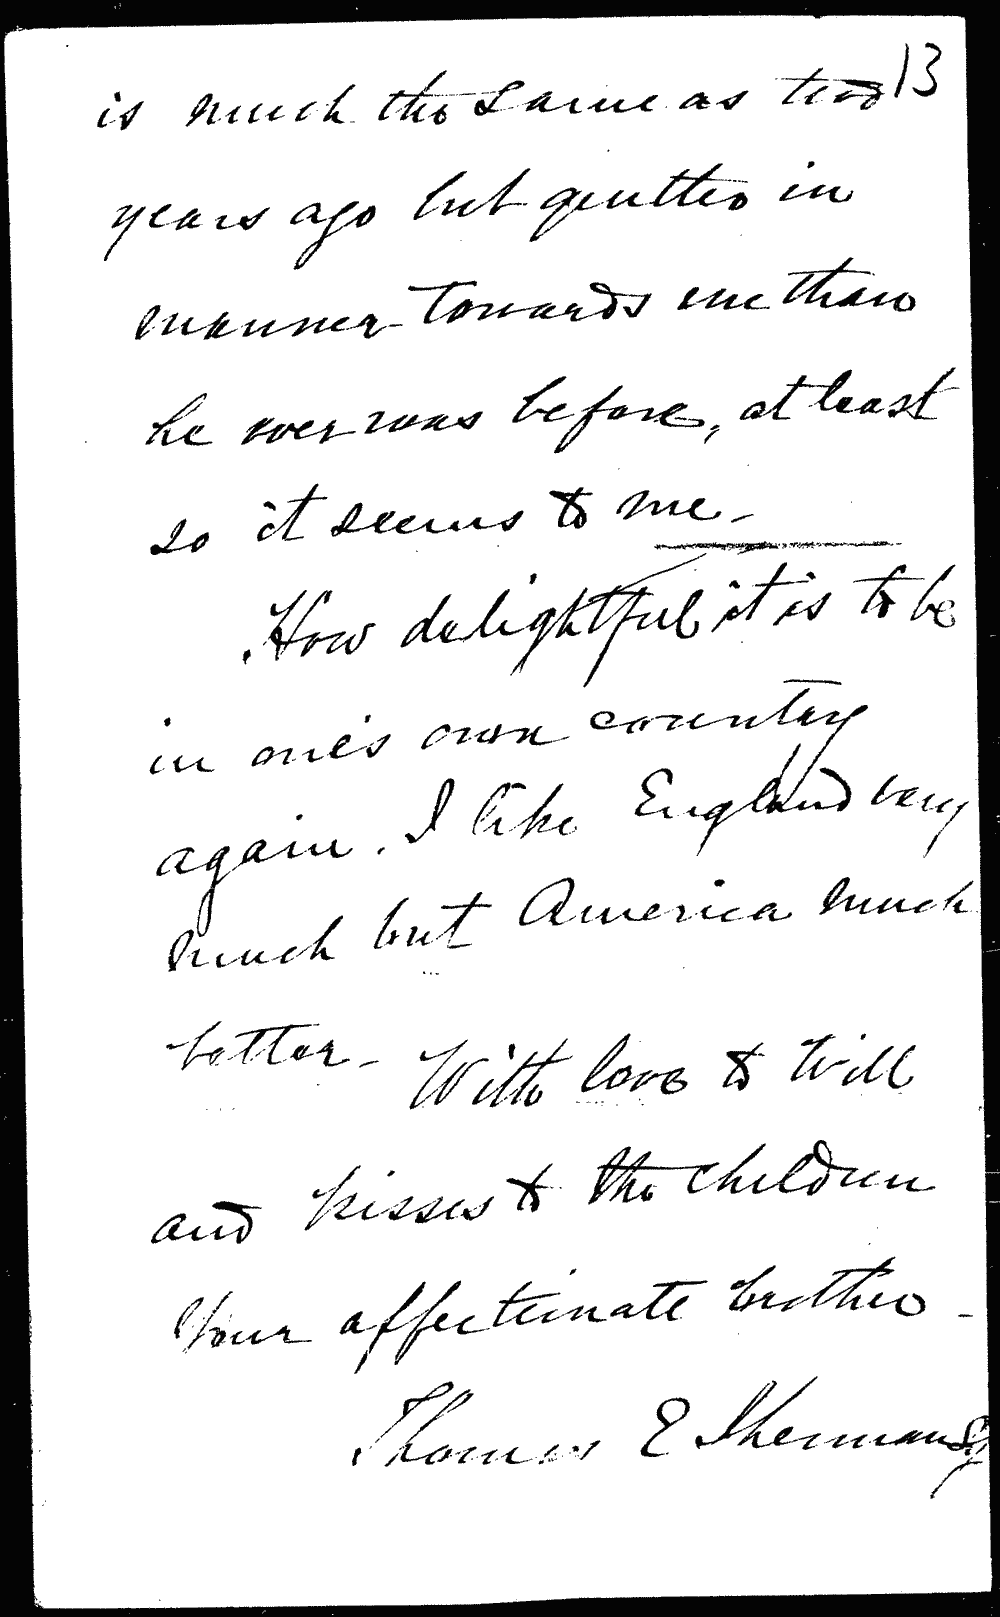 13
is much the same as two
years ago but gentler in
manner towards me than
he ever was before, at least
so it seems to me -
How delightful it is to be
in one's own country
again. I like England very
much but America much
better - With love to Will
and kisses to the children
Your affectionate brother -
Thomas E Sherman SJ